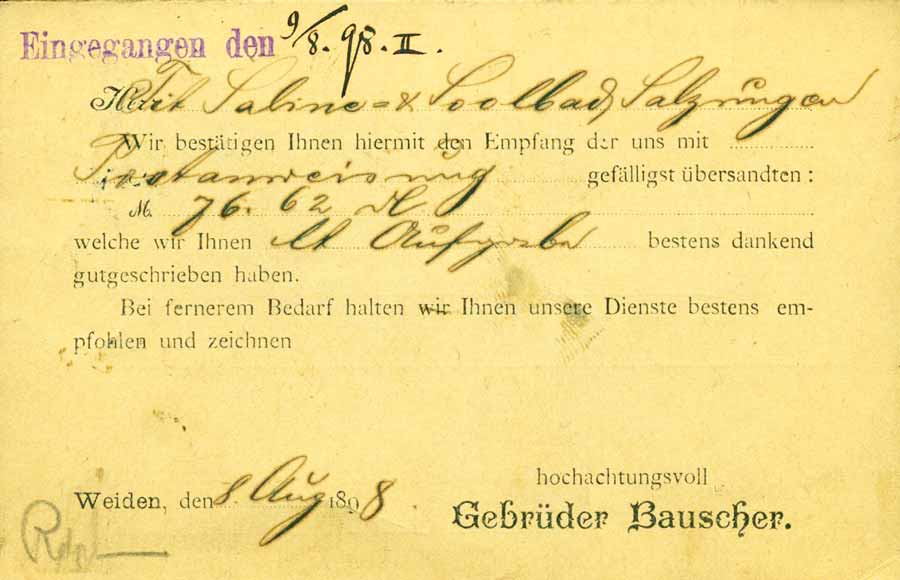 Eingegangen den 9/8.98.II.
Tit Saline- & Soolbad, Salzungen
Wir bestätigen Ihnen hiermit den Empfang der uns mit
Postanweisung gefälligst übersandten:
M. 76.62 M
welche wir Ihnen lt Aufgabe bestens dankend
gutgeschrieben haben.
Bei fernerem Bedarf halten wir Ihnen unsere Dienste bestens em-
pfohlen und zeichnen
hochachtungsvoll
Weiden, den 8. Aug 1898
Gebrüder Bauscher.